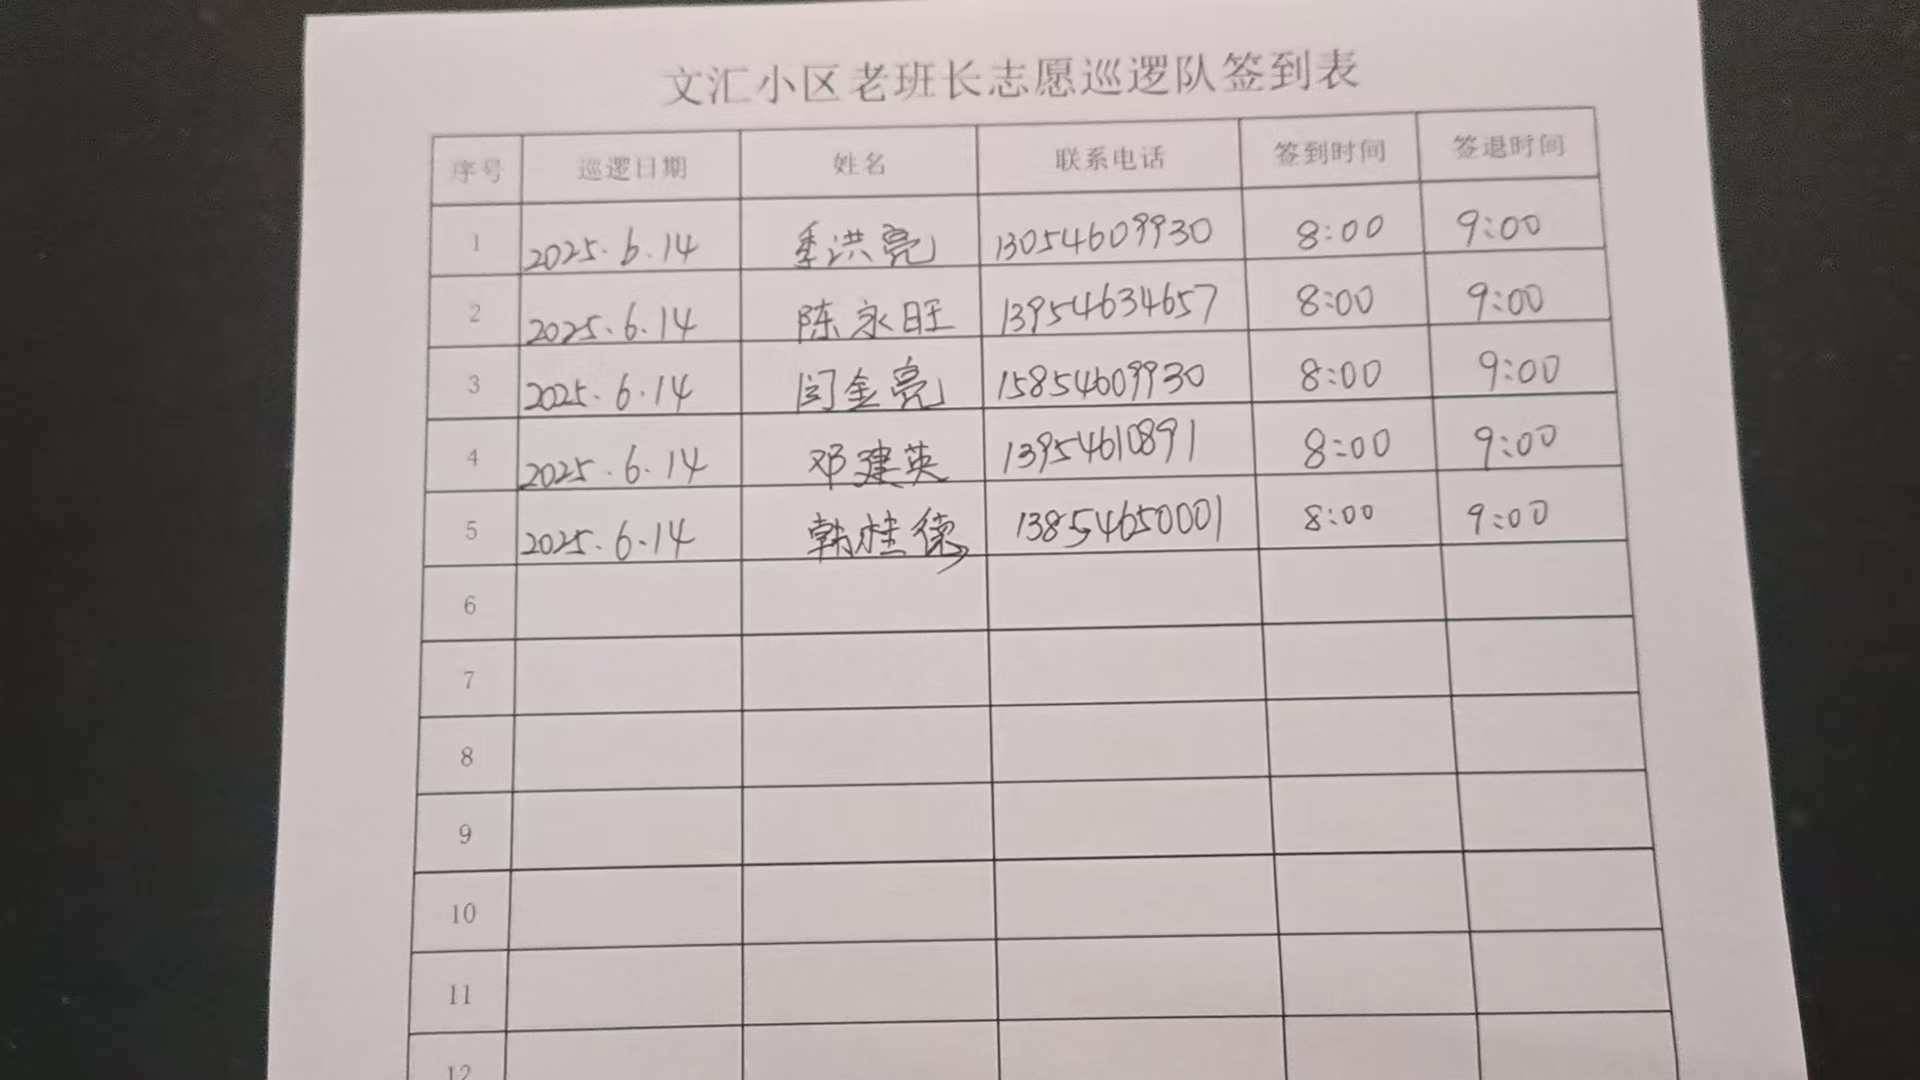 文汇小区老班长志愿巡逻队签到表
序号 巡逻日期 姓名 联系电话 签到时间 签退时间
1 2025.6.14 季洪亮 13054609930 8:00 9:00
2 2025.6.14 陈永旺 13954634657 8:00 9:00
3 2025.6.14 闫金亮 15854609930 8:00 9:00
4 2025.6.14 邓建英 13954610891 8:00 9:00
5 2025.6.14 韩桂德 13854650001 8:00 9:00
6
7
8
9
10
11
12